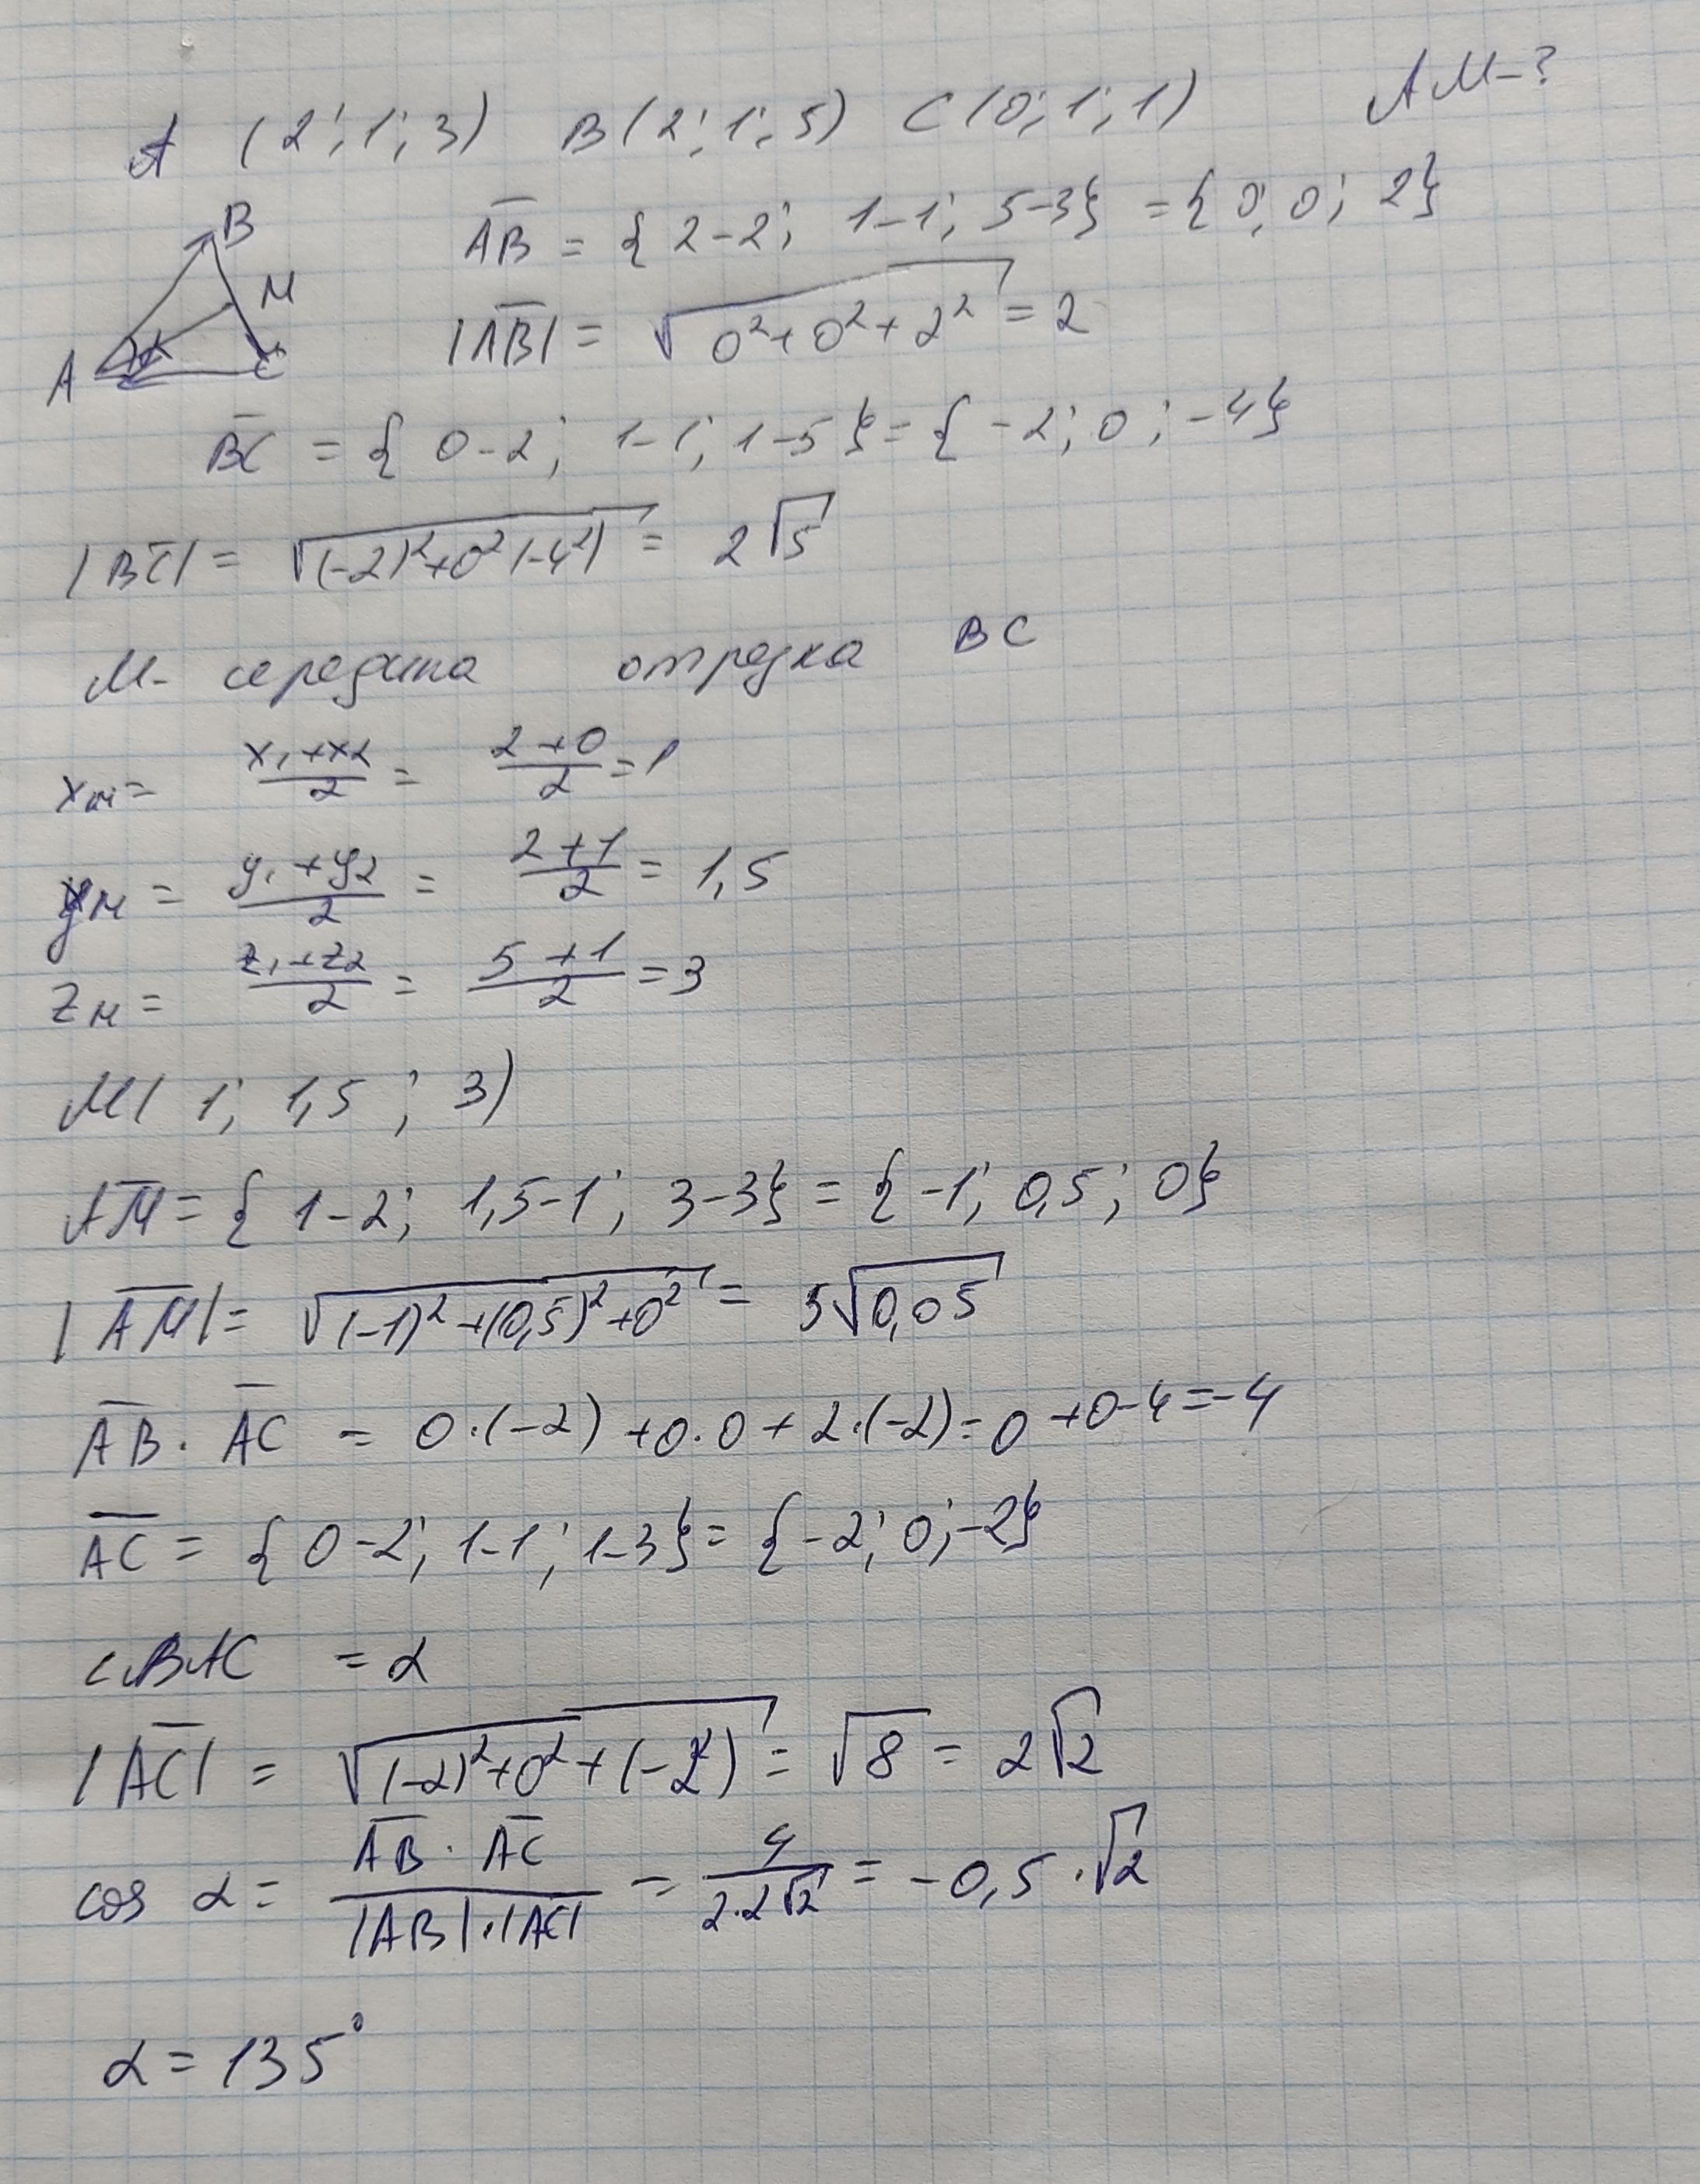 A (2; 1; 3) B(2; 1; 5) C(0; 1; 1) AM-?
B
M
A
C
AB = { 2-2; 1-1; 5-3} = { 0; 0; 2}
|AB| = √0²+0²+2² = 2
BC = { 0-2; 1-1; 1-5} = { -2; 0; -4}
|BC| = √(-2)²+0²(-4²) = 2√5
M- середина отрезка BC
xм= x₁+x₂/2 = 2+0/2 = 1
yм = y₁+y₂/2 = 2+1/2 = 1,5
zм = z₁+z₂/2 = 5+1/2 = 3
M( 1; 1,5; 3)
AM = { 1-2; 1,5-1; 3-3} = { -1; 0,5; 0}
|AM| = √(-1)²+(0,5)²+0² = 5√0,05
AB · AC = 0·(-2)+0·0+2·(-2)=0+0-4=-4
AC = { 0-2; 1-1; 1-3} = {-2; 0; -2}
∠BAC = α
|AC| = √(-2)²+0²+(-2²) = √8 = 2√2
cos α = AB · AC/|AB|·|AC| = 4/2·2√2 = -0,5·√2
α = 135°